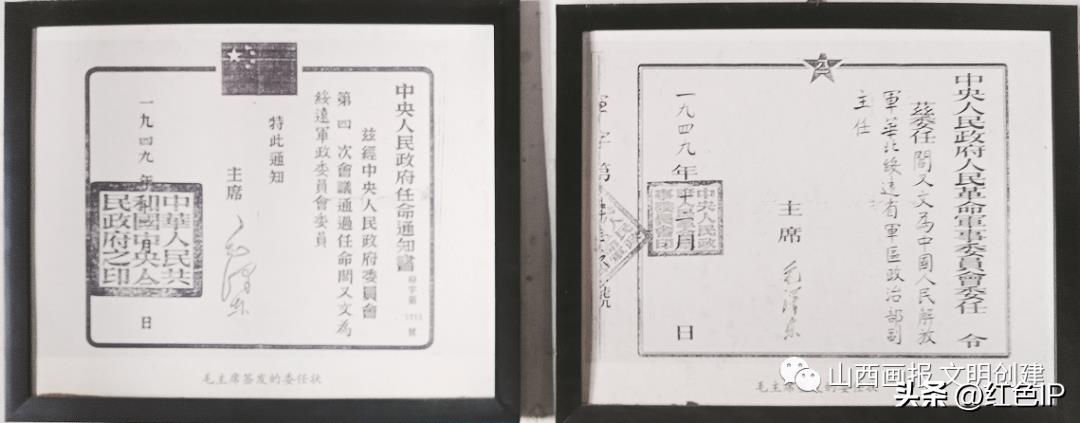 中央人民政府任命通知書
字第 號
茲經中央人民政府委員會
第四次會議通過任命閻又文為
綏遠軍政委員會委員
特此通知
主席 毛澤東
一九四九年 月 日
中華人民共
和國中央人
民政府之印
毛主席签发的委任状
中央人民政府人民革命軍事委員會委任令
茲委任閻又文為中國人民解放
軍華北綏遠省軍區政治部副
主任
主席 毛澤東
一九四九年十二月 日
字第 號
毛主席 的委任状
山西画报 文明创建
头条 @红色IP